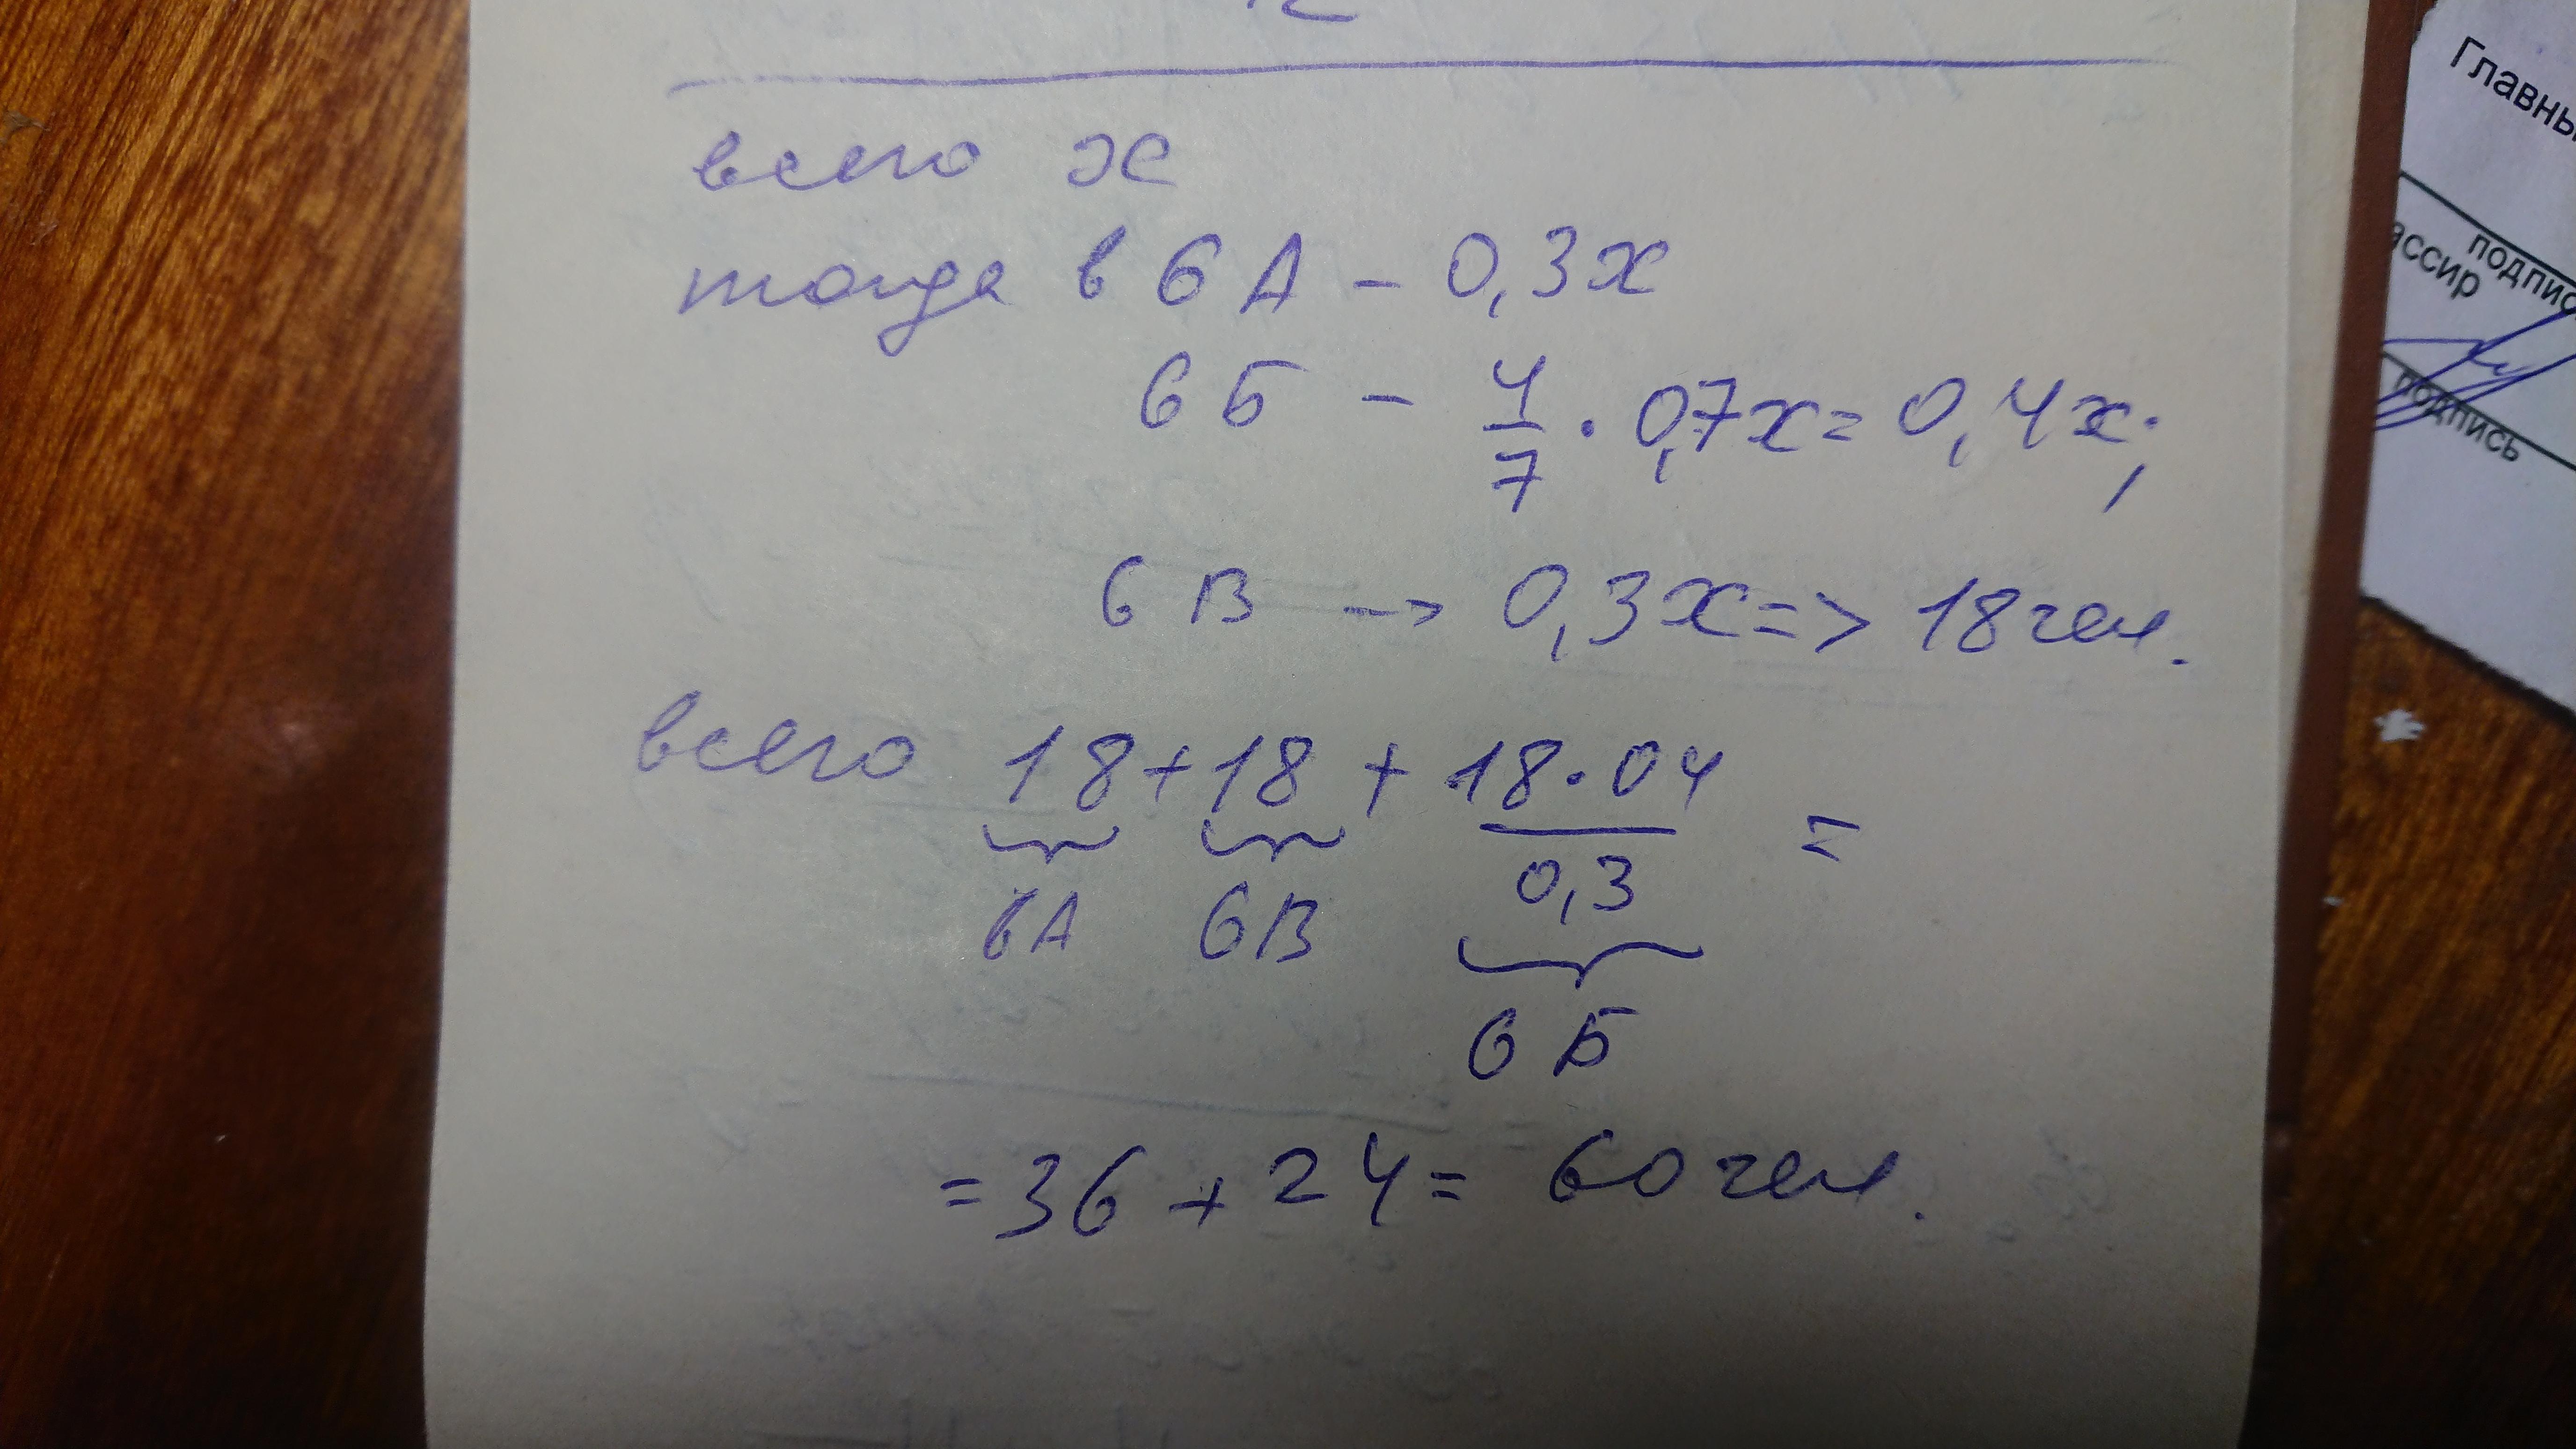 всего x
тогда в 6 А – 0,3x
6 Б – 4/7 · 0,7x = 0,4x;
6 В –> 0,3x => 18 чел.
всего 18 + 18 + 18·04/0,3 =
6А 6В
6 Б
= 36 + 24 = 60 чел.
Главны
подпис
ассир
подпись